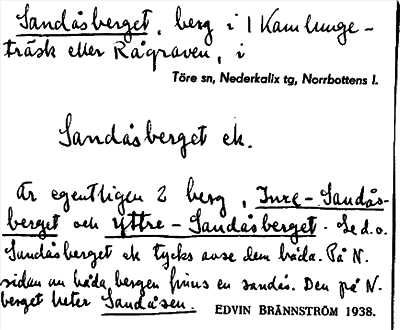 Sandåsberget, berg i l Kamlunge-
träsk eller Rågraven, i
Töre sn, Nederkalix tg, Norrbottens l.
Sandåsberget ek.
Är egentligen 2 berg, Inre-Sandås-
berget och Yttre-Sandåsberget. Se d.o.
Sandåsberget ek tycks avse dem båda. På N.
sidan om båda bergen finns en sandås. Den på N-
berget heter Sandåsen. EDVIN BRÄNNSTRÖM 1938.